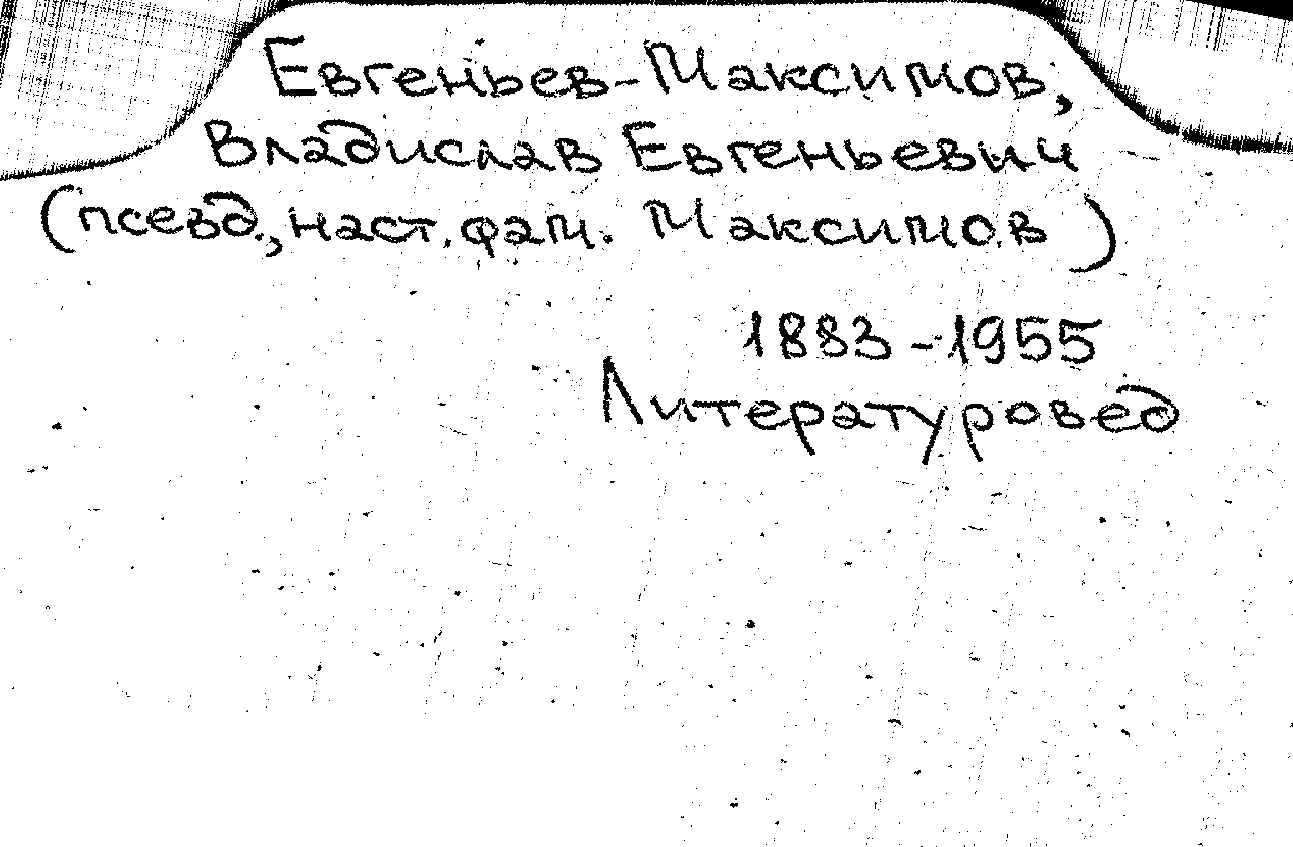 Евгеньев-Максимов,
Владислав Евгеньевич
(псевд., наст. фам. Максимов)
1883-1955
Литературовед